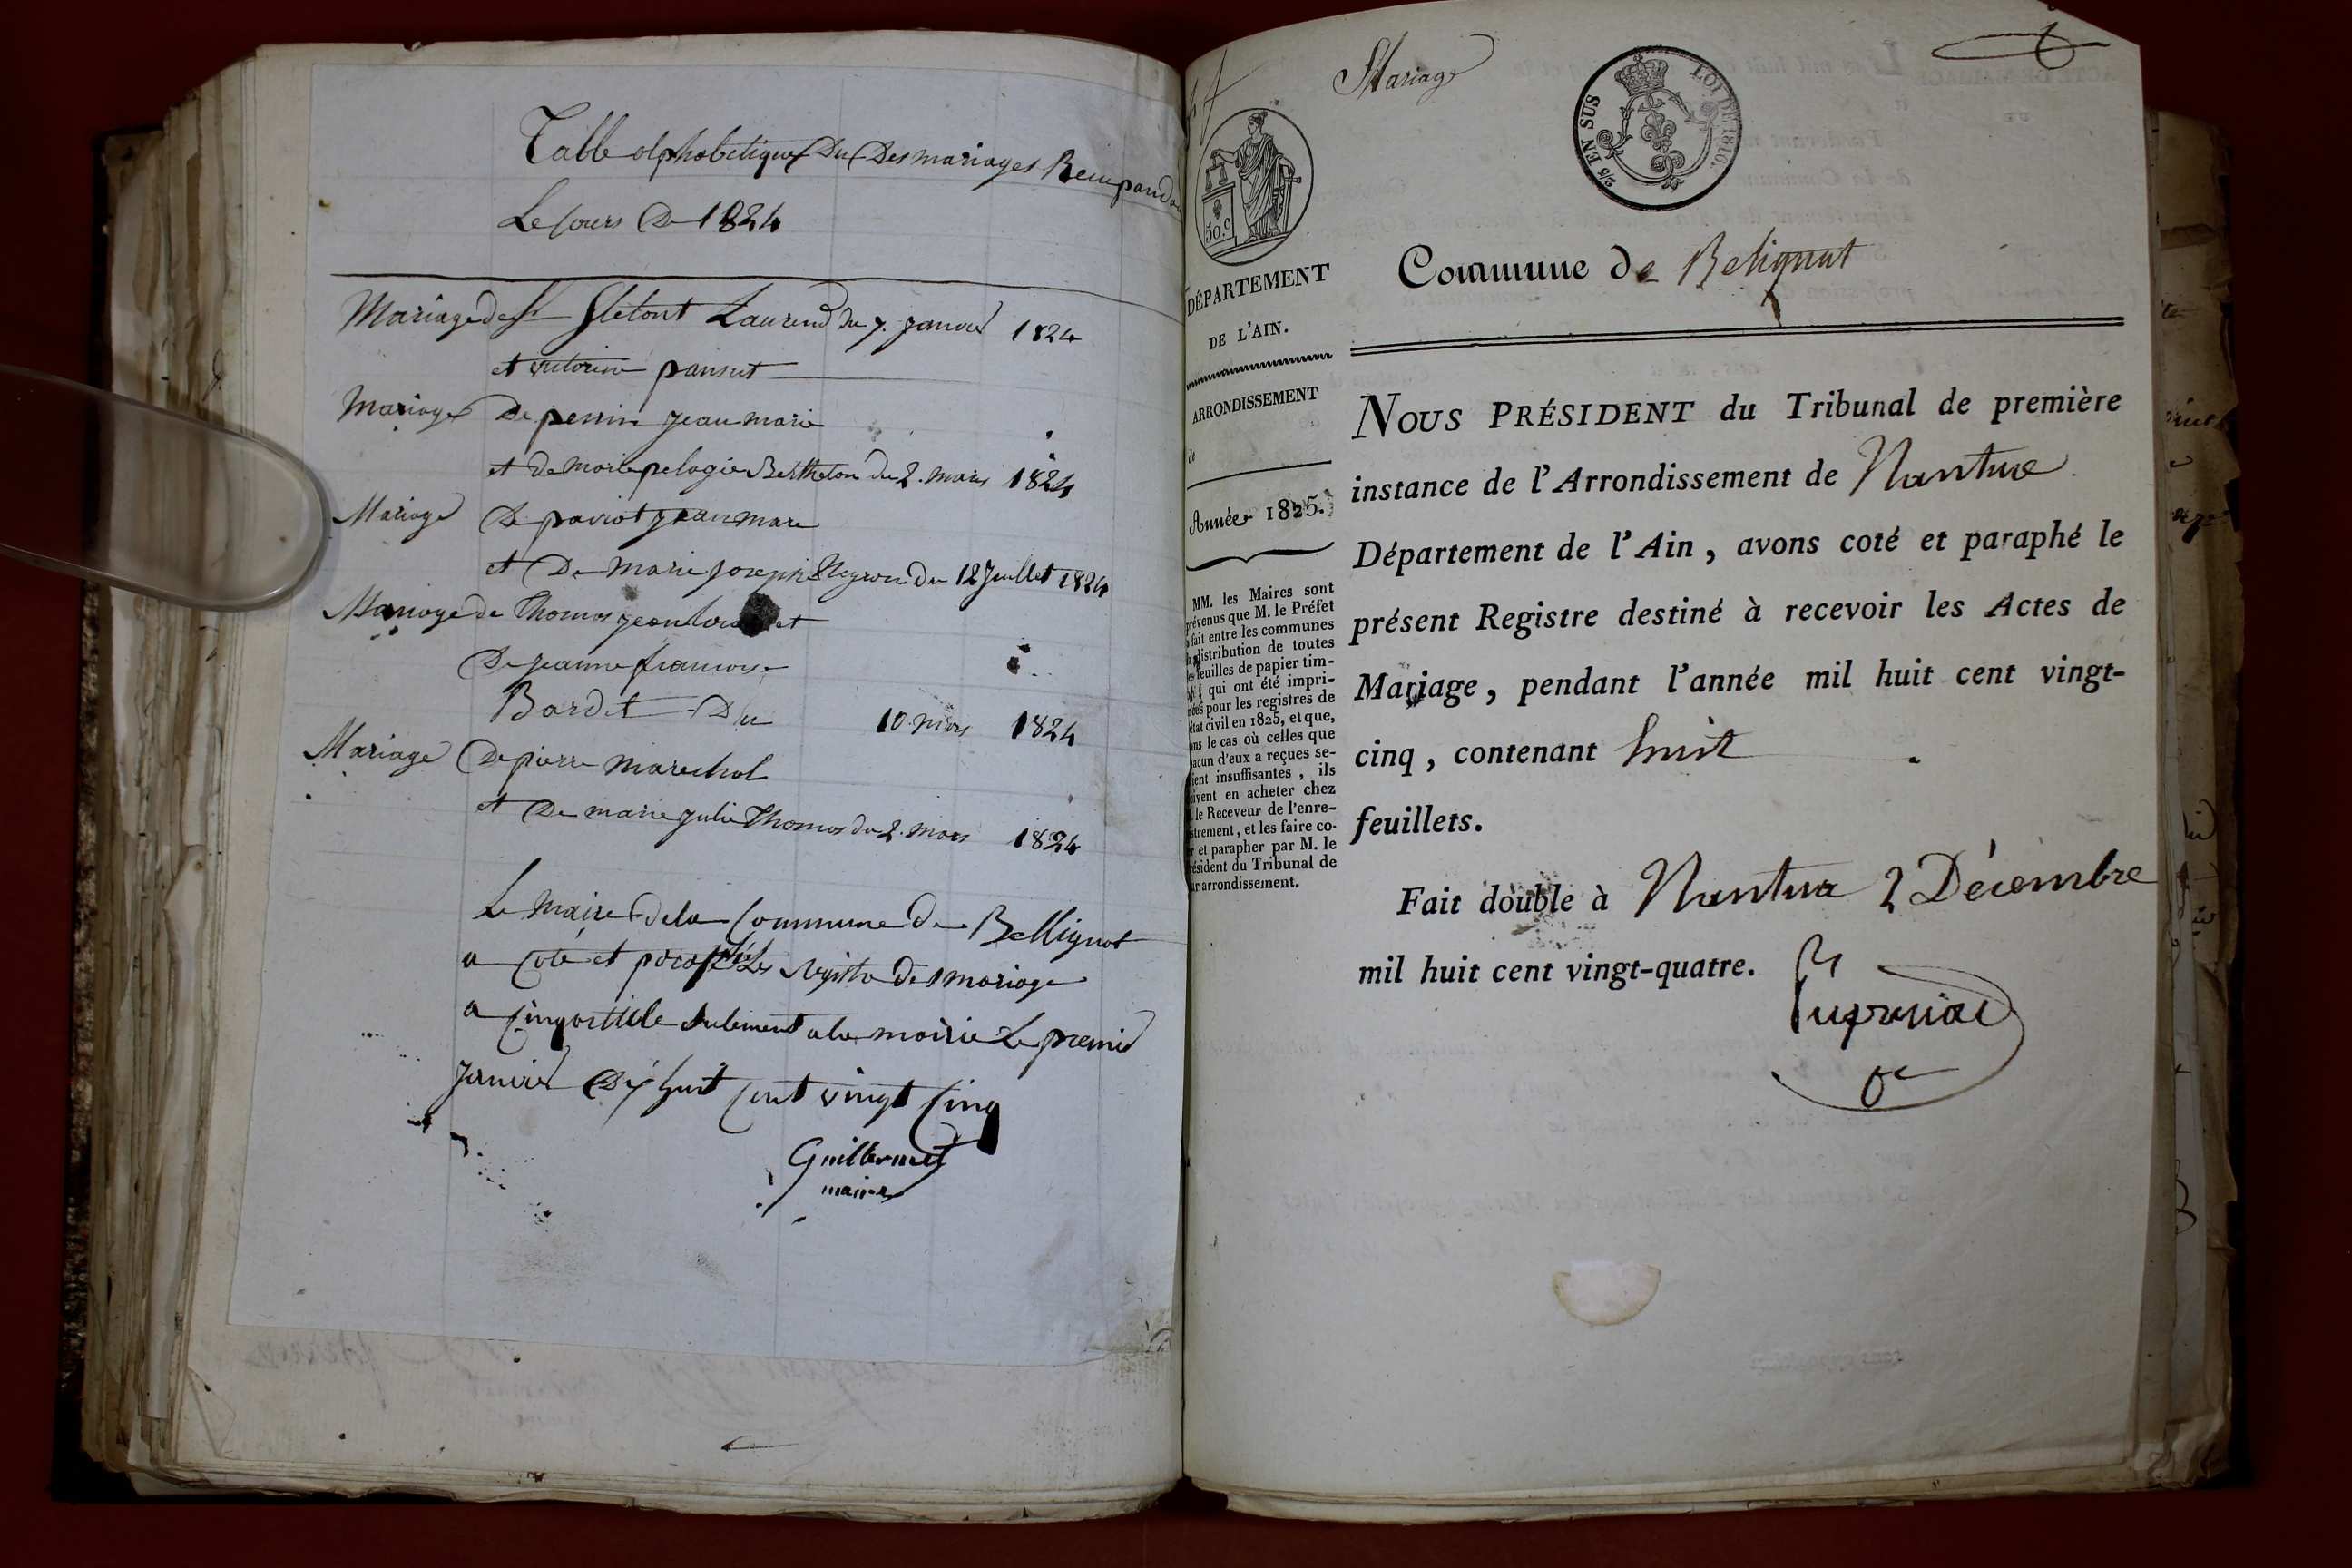 Table alphabetique Du Des mariages Recu pandan
Le Cours De 1824
Mariage de Laurend du 7. janvier 1824
et victorine pansut
Mariage De perrin jean marie
et de marie pelagie Bertheton du 2. mars 1824
Mariage De paviot jean marie
et De marie joseph du 12 Juillet 1824
Mariage de Thomas jean et
De jeanne francoise
Bardet Du 10. mars 1824
Mariage De pierre marechal
et De marie julie Thomas du 2. mars 1824
Le Maire de la Commune De Bellignat
a Coté et paraphé Les registre Des mariage
a Cinq article seulement a la mairie Le premier
janvier Dix huit Cent vingt Cinq
Guillermet
maire
Mariage
2/5 EN SUS
LOI DE 1816.
50.c
DÉPARTEMENT
DE L'AIN.
ARRONDISSEMENT
de
Année 1825.
MM. les Maires sont
prévenus que M. le Préfet
a fait entre les communes
la distribution de toutes
les feuilles de papier tim-
qui ont été impri-
mées pour les registres de
état civil en 1825, et que,
dans le cas où celles que
chacun d'eux a reçues se-
raient insuffisantes, ils
doivent en acheter chez
M. le Receveur de l'enre-
gistrement, et les faire co-
ter et parapher par M. le
Président du Tribunal de
leur arrondissement.
Commune de Belignat
NOUS PRÉSIDENT du Tribunal de première
instance de l'Arrondissement de Nantua
Département de l'Ain, avons coté et paraphé le
présent Registre destiné à recevoir les Actes de
Mariage, pendant l'année mil huit cent vingt-
cinq, contenant huit
feuillets.
Fait double à Nantua 2 Décembre
mil huit cent vingt-quatre.